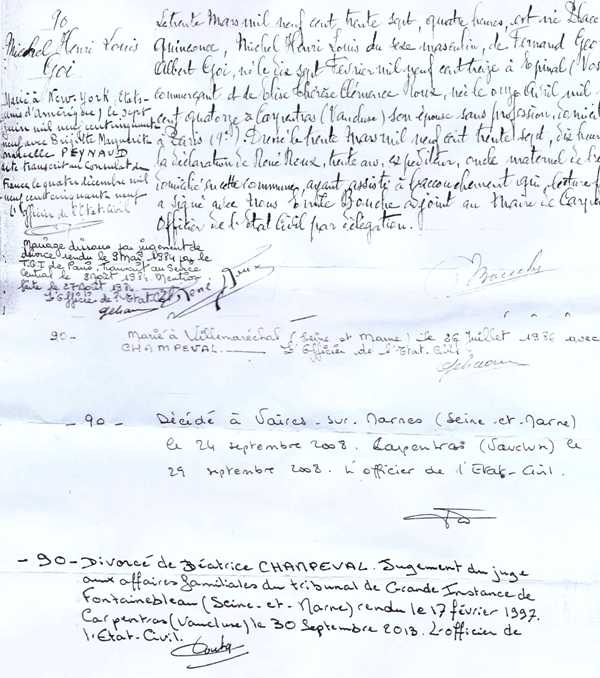 90
Michel Henri Louis
Goi
Marié à New-York, Etats-
unis d'Amérique) le sept
juin mil neuf cent cinquante
neuf avec Brigitte Marguerite
PEYNAUD
acte transcrit au Consulat de
France le quatre décembre mil
neuf cent cinquante neuf
l'Officier de l'Etat-Civil
Mariage dissous par jugement de
divorce rendu le 8 Mars 1984 par le
T.G.I de Paris, transcrit au Service
Central le 3 Août 1984. Mention
faite le 27 Août 1984
L'Officier de l'Etat-Civil
Le trente Mars mil neuf cent trente sept, quatre heures, est né Place
Quinconce, Michel Henri Louis du sexe masculin, de Fernand Geo
Albert Goi, né le dix sept Février mil neuf cent treize à Epinal (Vos
commerçant et de Thérèse Clémence Roux, née le onze Avril mil
cent quatorze à Carpentras (Vaucluse) son épouse sans profession, domicil
à Paris Dressé le trente Mars mil neuf cent trente sept, dix heur
la déclaration de René Roux, trente ans, expéditeur, oncle maternel de l'e
domicilié en cette commune, ayant assisté à l'accouchement qui, lecture f
a signé avec nous Bouche adjoint au Maire de Carpe
Officier de l'Etat Civil par délégation.
Bouche
90- Marié à Villemaréchal (Seine et Marne) le 26 Juillet 1986 avec
CHAMPEVAL. L'Officier de l'Etat-Civil
- 90 - Décédé à Vaires-sur-Marnes (Seine-et-Marne)
le 24 septembre 2008. Carpentras (Vaucluse) le
29 septembre 2008. L'officier de l'Etat-Civil.
- 90 - Divorcé de Béatrice CHAMPEVAL. Jugement du juge
aux affaires familiales du tribunal de Grande Instance de
Fontainebleau (Seine-et-Marne) rendu le 17 février 1997.
Carpentras (Vaucluse) le 30 Septembre 2013. L'officier de
l'Etat-Civil.